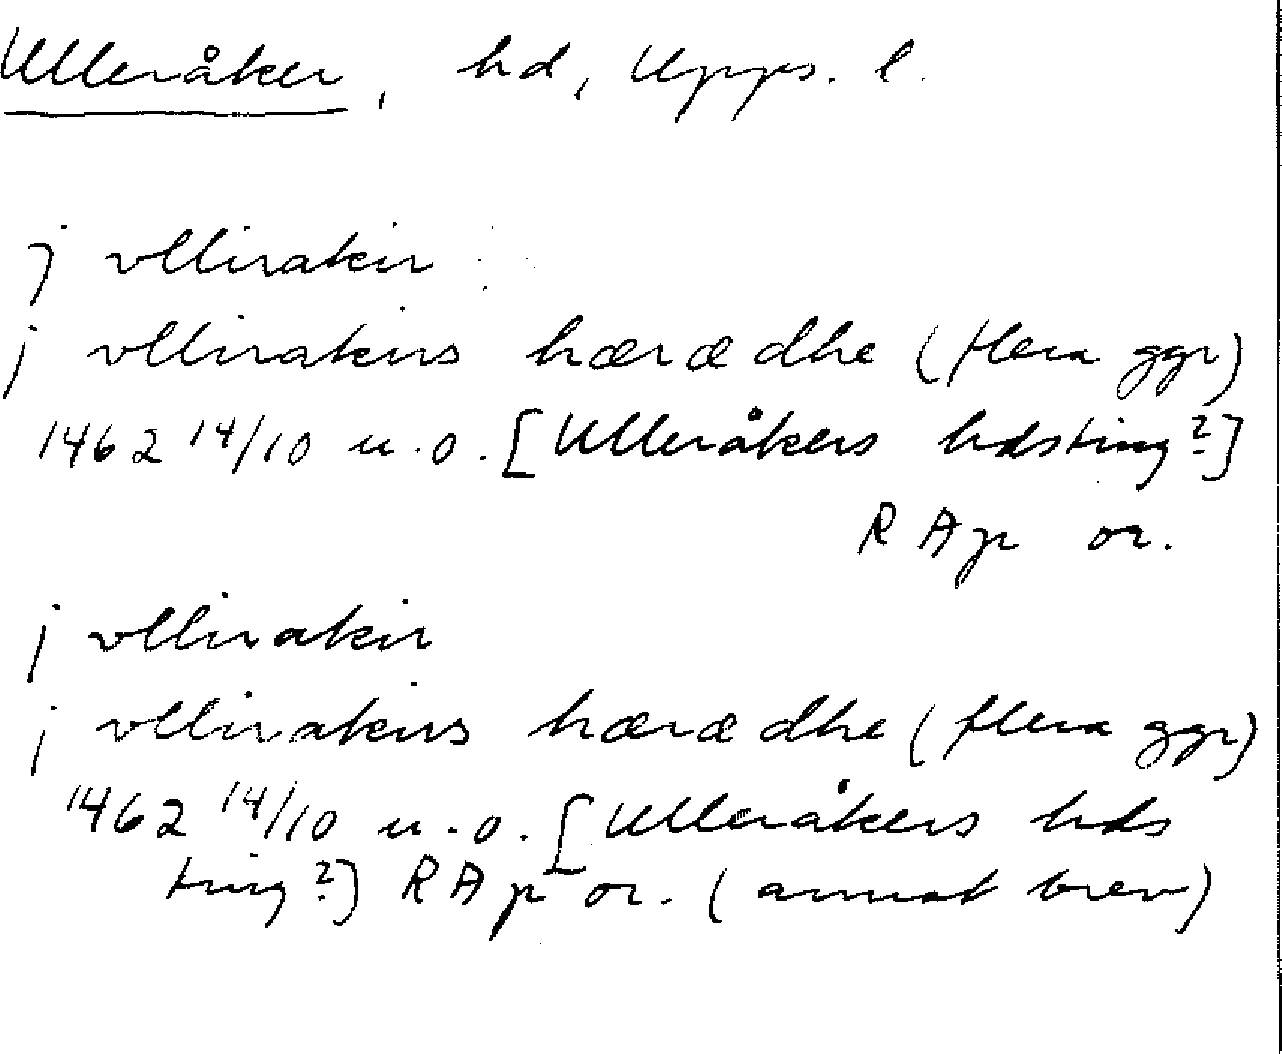 Ulleråker, hd, Upps. l.
j vllirakir
j vllirakirs hæradhe (flera ggr)
1462 14/10 u.o. [Ulleråkers hdsting?]
RAp or.
j vllirakir
j vllirakirs hæradhe (flera ggr)
1462 14/10 u.o. [Ulleråkers hds
ting?] RAp or. (annat brev)